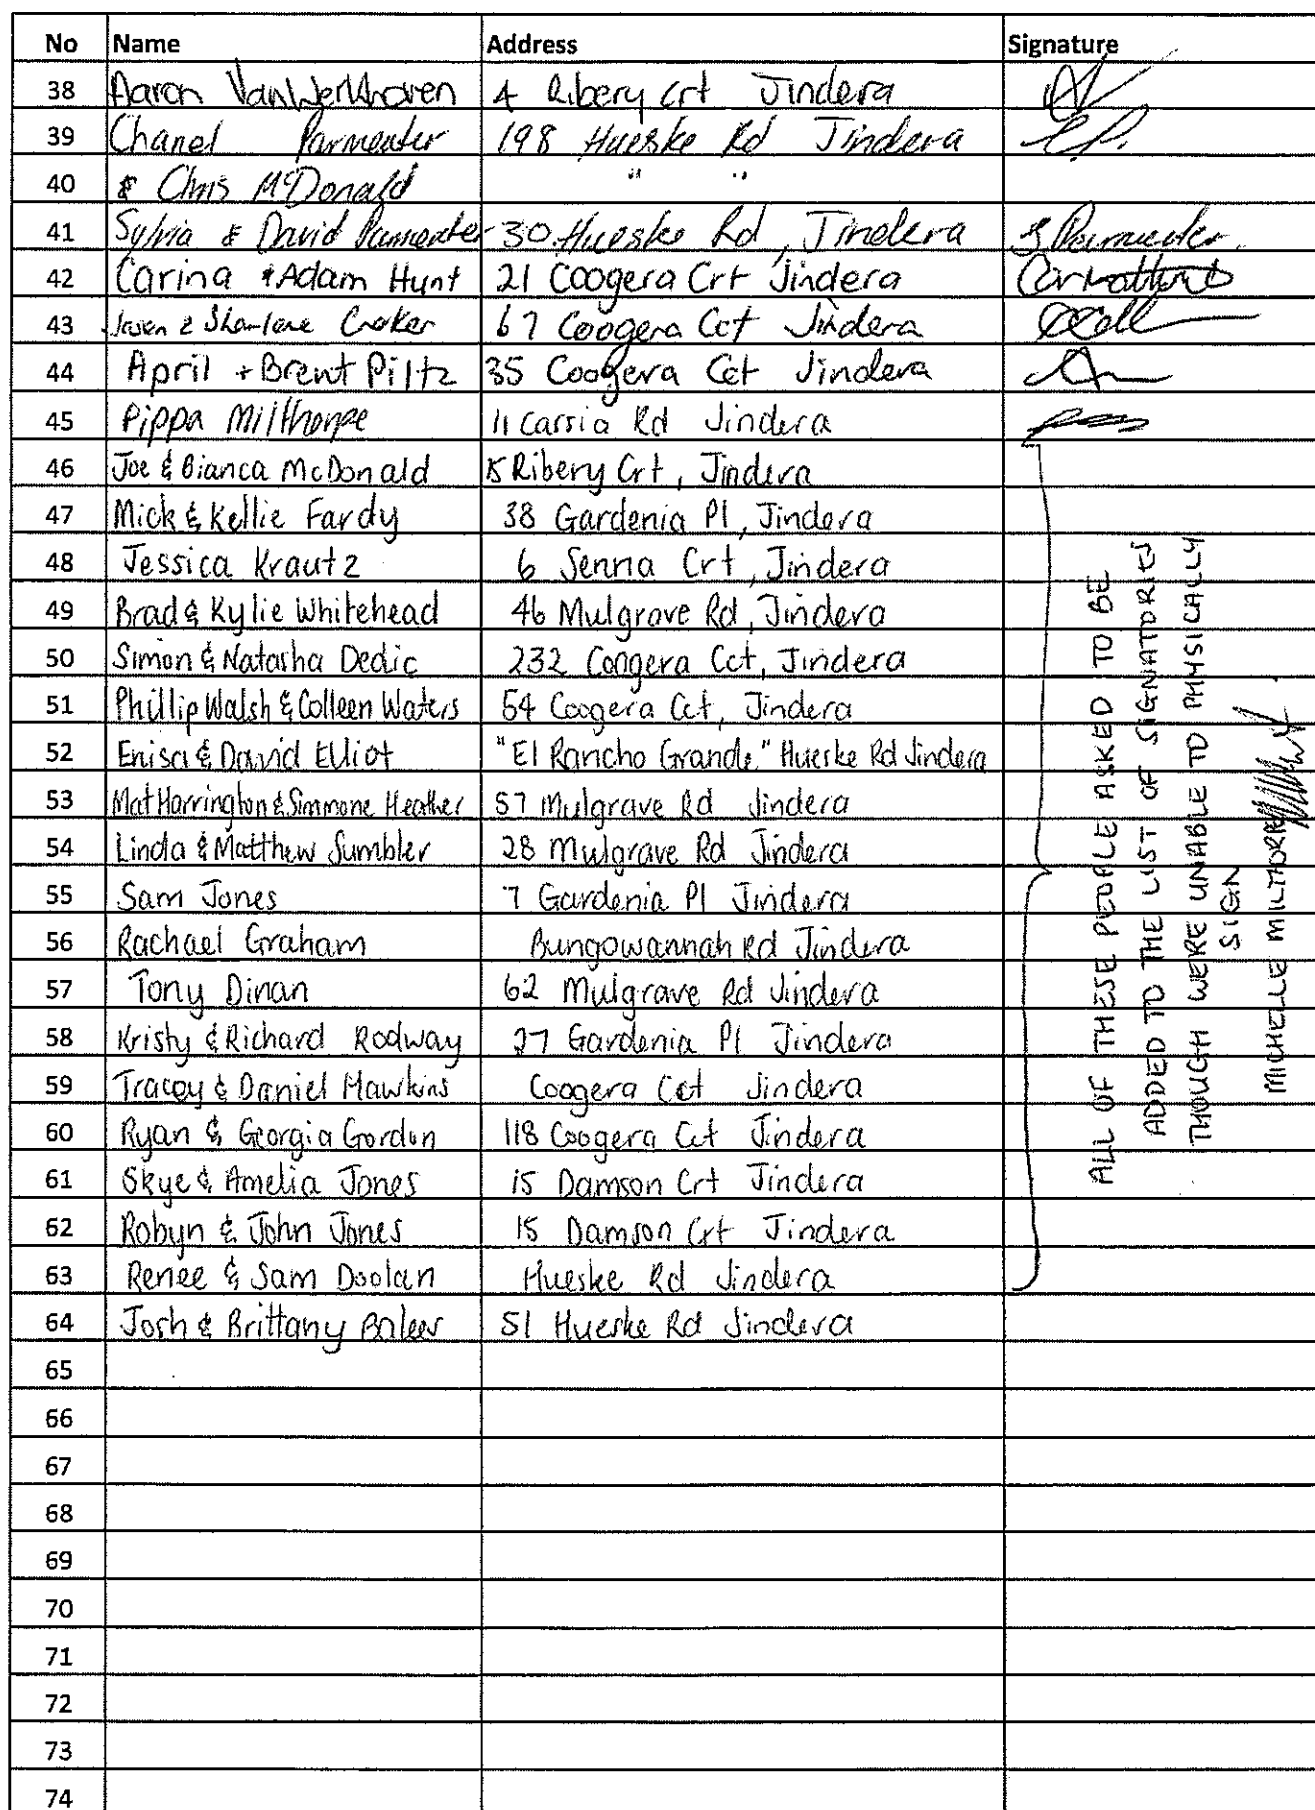 No Name Address Signature
38 Aaron VanWerkhoven 4 Ribery Crt Jindera
39 Chanel Parmenter 198 Hueske Rd Jindera C.P.
40 & Chris McDonald " "
41 Sylvia & David Parmenter 30 Hueske Rd, Jindera S Parmenter
42 Carina + Adam Hunt 21 Coogera Crt Jindera
43 Jason & Sharlene Croker 67 Coogera Cct Jindera
44 April + Brent Piltz 35 Coogera Cct Jindera
45 Pippa Milthorpe 11 Cassia Rd Jindera
46 Joe & Bianca McDonald 15 Ribery Crt, Jindera
47 Mick & Kellie Fardy 38 Gardenia Pl, Jindera
48 Jessica Krautz 6 Senna Crt, Jindera
49 Brad & Kylie Whitehead 46 Mulgrave Rd, Jindera
50 Simon & Natasha Dedic 232 Coogera Cct, Jindera
51 Phillip Walsh & Colleen Waters 54 Coogera Cct, Jindera
52 Enisa & David Elliot "El Rancho Grande" Hueske Rd Jindera
53 Mat Harrington & Simmone Heather 57 Mulgrave Rd Jindera
54 Linda & Matthew Sumbler 28 Mulgrave Rd Jindera
55 Sam Jones 7 Gardenia Pl Jindera
56 Rachael Graham Bungowannah Rd Jindera
57 Tony Dinan 62 Mulgrave Rd Jindera
58 Kristy & Richard Rodway 27 Gardenia Pl Jindera
59 Tracey & Daniel Hawkins Coogera Cct Jindera
60 Ryan & Georgia Gordon 118 Coogera Cct Jindera
61 Skye & Amelia Jones 15 Damson Crt Jindera
62 Robyn & John Jones 15 Damson Crt Jindera
63 Renee & Sam Doolan Hueske Rd Jindera
64 Josh & Brittany 51 Hueske Rd Jindera
65
66
67
68
69
70
71
72
73
74
ALL OF THESE PEOPLE ASKED TO BE
ADDED TO THE LIST OF SIGNATORIES
THOUGH WERE UNABLE TO PHYSICALLY
SIGN
MICHELLE